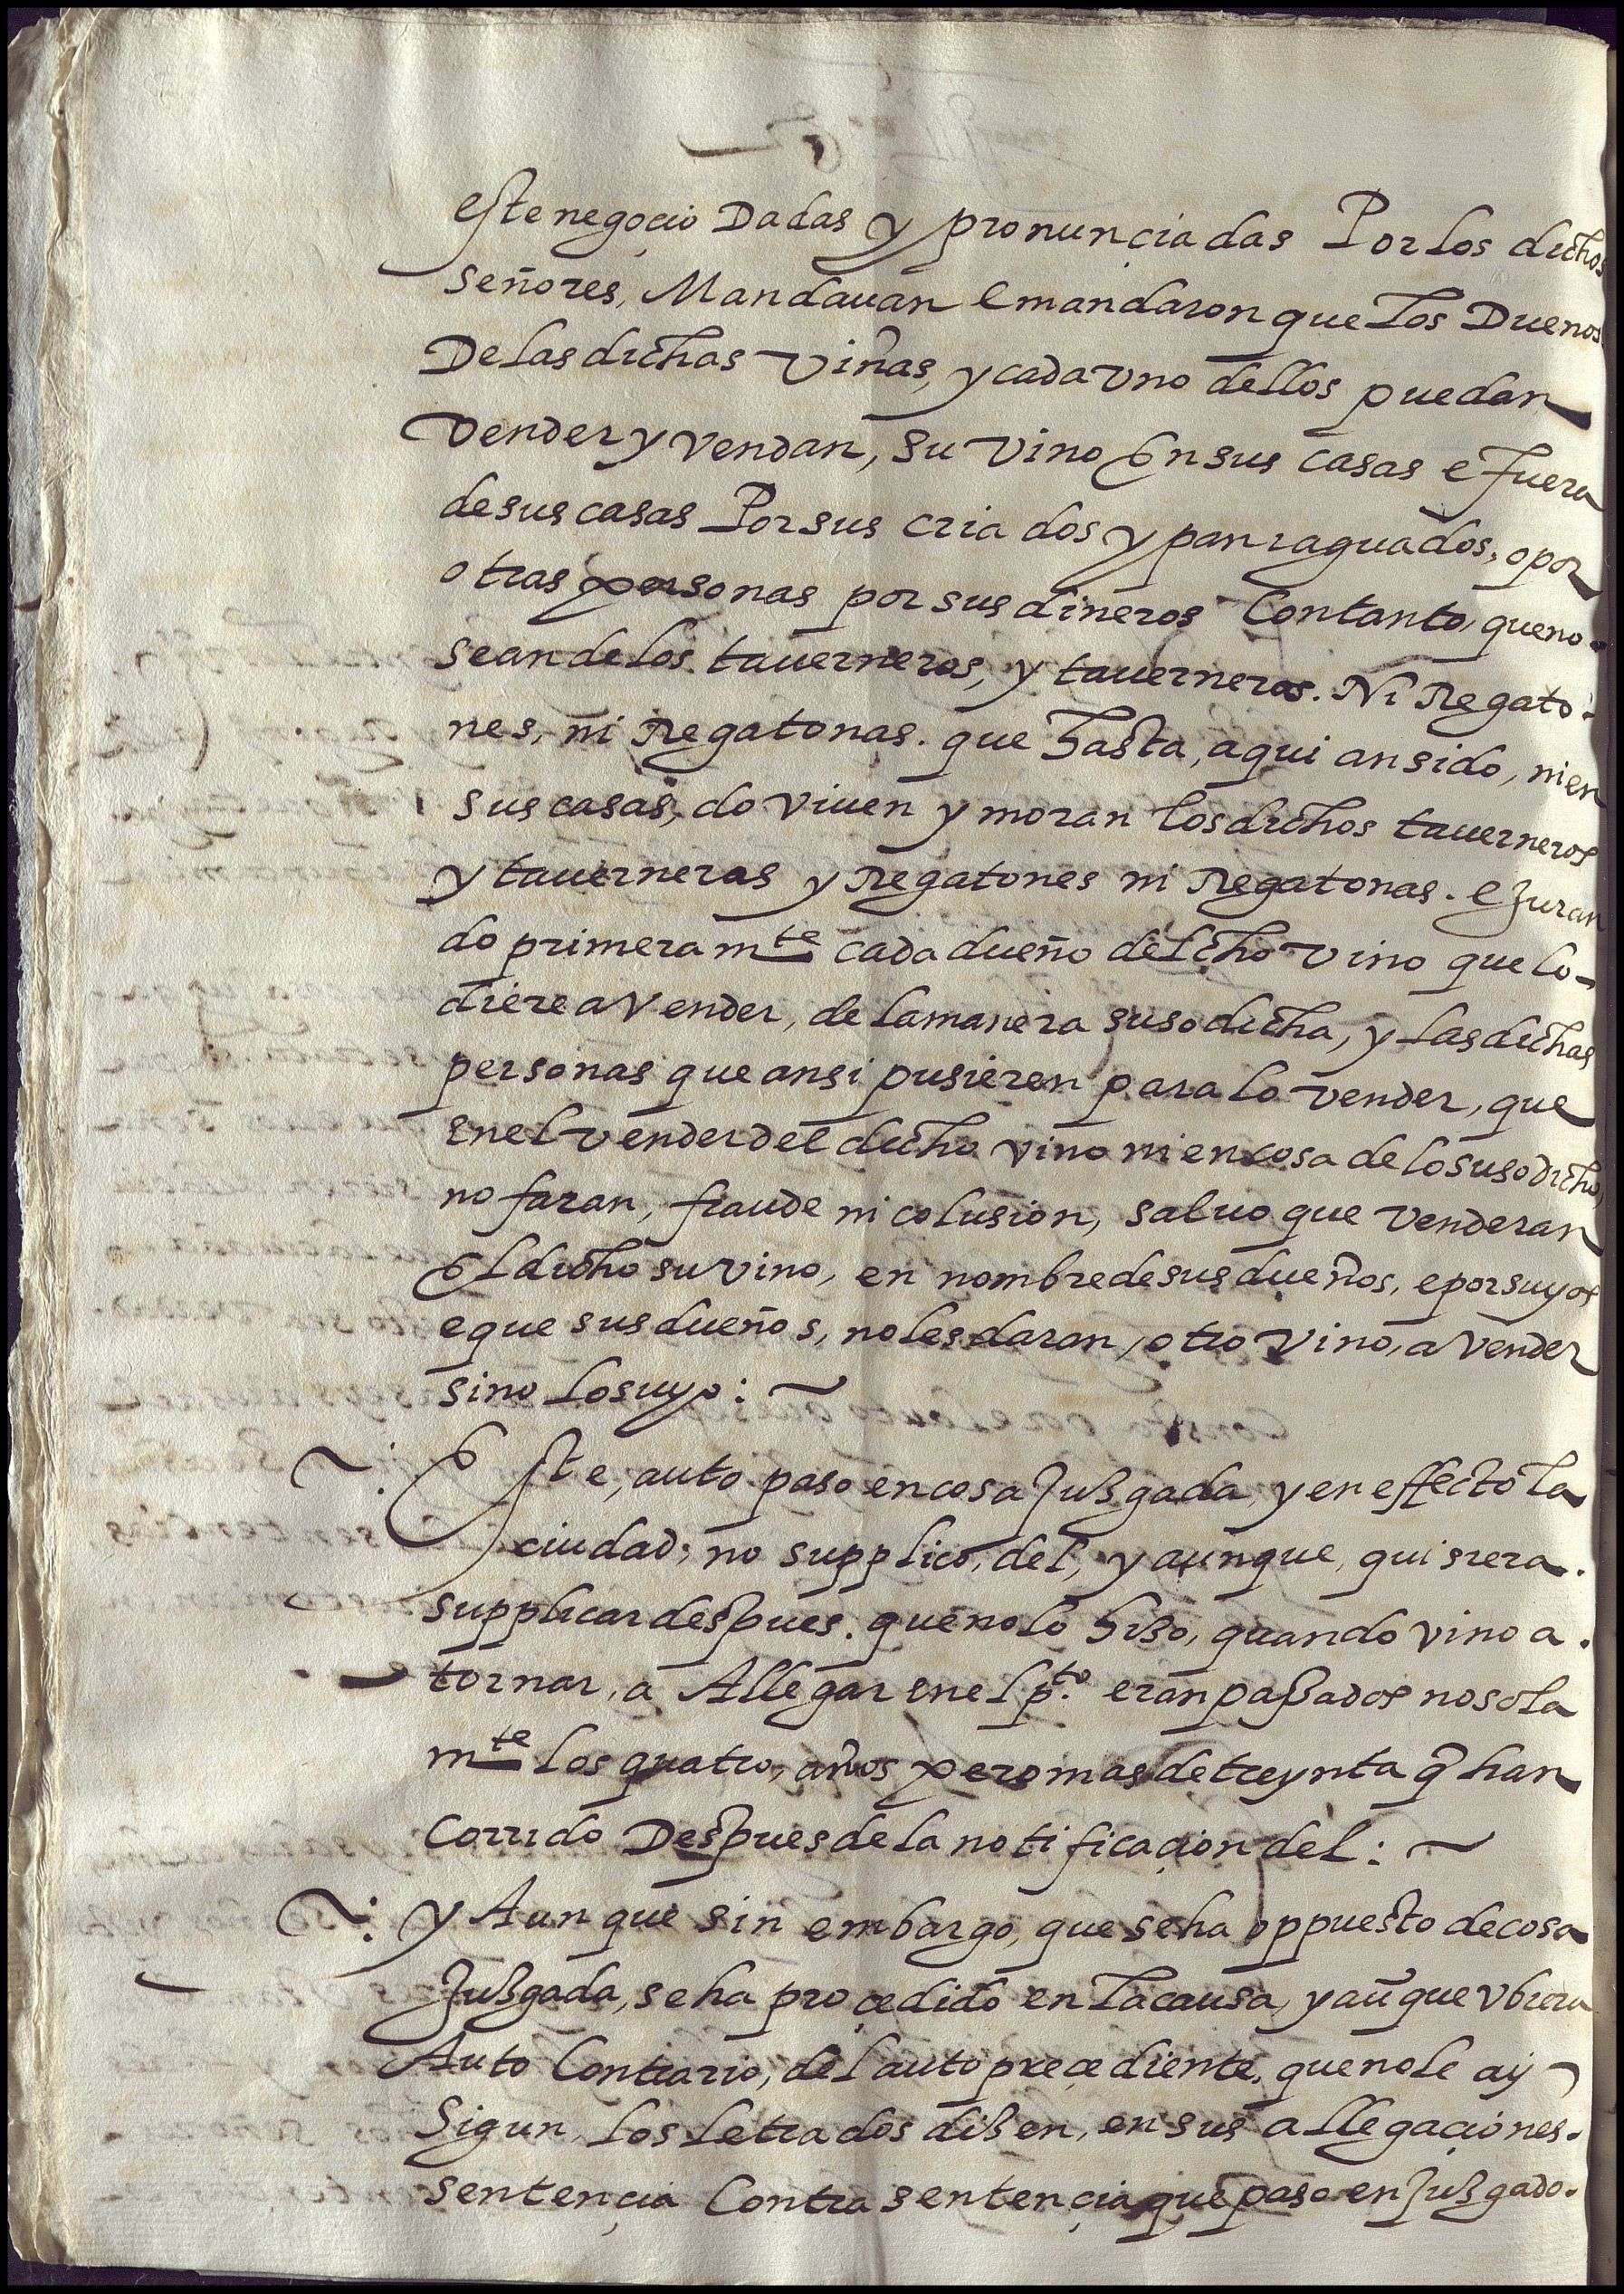 este negoçio Dadas y pronunçiadas Por los dichos
señores, Mandauan e mandaron que los Duenos
De las dichas viñas, y cada vno dellos puedan
vender y vendan, su vino En sus casas e fuera
de sus casas Por sus criados y panıaguados, o por
otras personas por sus dineros Con tanto, que no
sean de los tauerneros, y tauerneras. Ni Regato-
nes, ni Regatonas. que hasta, aqui an sido, ni en
sus casas, do viuen y moran los dichos tauerneros
y tauerneras y Regatones ni Regatonas. e Juran
do primeram^te cada dueño del dcho vino que lo
diere a vender, de la manera suso dicha, y las dichas
personas que ansi pusieren para lo vender, que
en el vender del dicho vino ni en cosa de lo suso dicho,
no faran, fraude ni colusion, saluo que venderan
El dicho su vino, en nombre de sus dueños, e por suyos
e que sus dueños, no les daran, otro vino, a vender
sino lo suyo: ~
~: Este, auto paso en cosa Juzgada, y en effecto la
ciudad, no supplico, del, y aunque, quisiera.
supplicar despues. que no lo hizo, quando vino a.
tornar, a Allegar en el p^to. eran passados no sola
m^te los quatro, años pero mas de treynta q̃ han
Corrido Despues de la notificaçion del: ~
~: y Aunque sin embargo, que se ha oppuesto de cosa
Juzgada, se ha proçedido en la causa, y aũque vbiera
Auto Contrario, del auto preçediente, que no le ay
Sigun, los Letrados dizen, en sus allegaçiones.
sentençia Contra sentençia que paso en Juzgado.